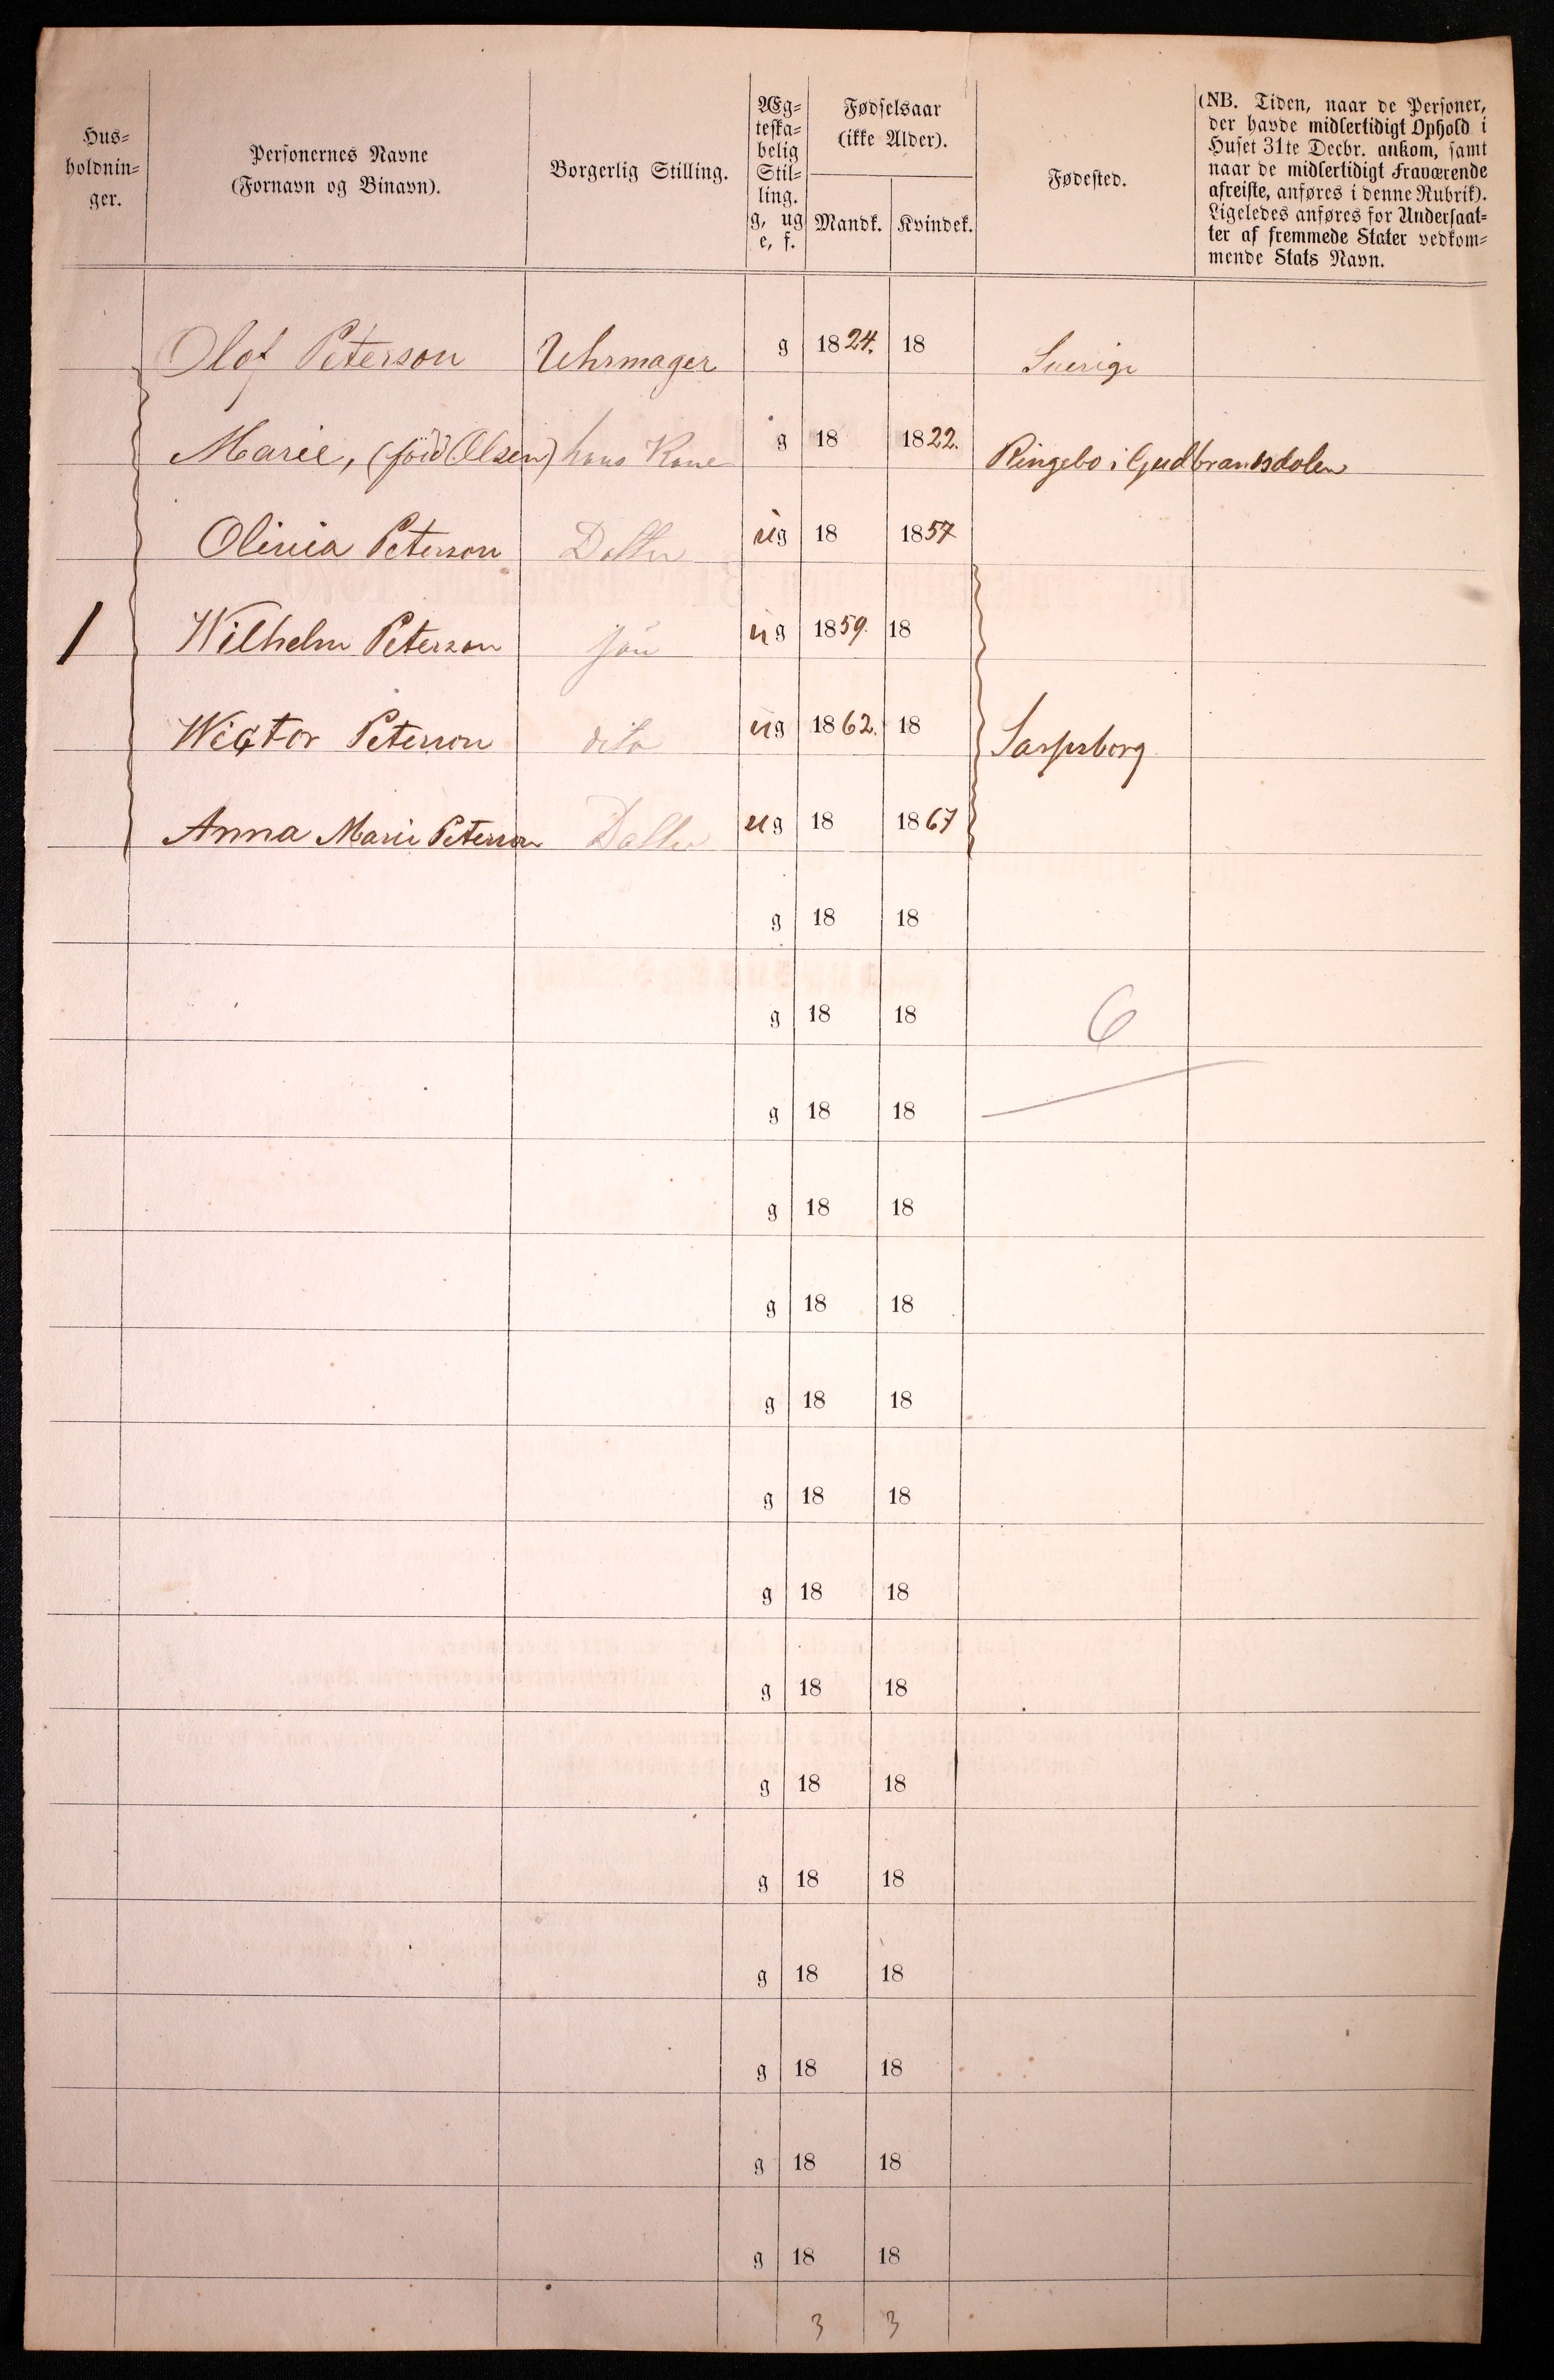 Hus=
holdnin=
ger.
Personernes Navne
(Fornavn og Binavn).
Borgerlig Stilling.
Æg=
teska=
belig
Stil=
ling.
g, ug
e, f.
Fødselsaar
(ikke Alder).
Mandk. Kvindek.
Fødested.
(NB. Tiden, naar de Personer,
der havde midlertidigt Ophold i
Huset 31te Decbr. ankom, samt
naar de midlertidigt Fraværende
afreiste, anføres i denne Rubrik).
Ligeledes anføres for Undersaat=
ter af fremmede Stater vedkom=
mende Stats Navn.
Olof Peterson Uhrmager g 1824. 18 Sverige
Marie, (född Olsen) hans Kone g 18 1822. Ringebo i Gudbrandsdolen
Olivia Peterson Dotter ug 18 1857
1 Wilhelm Peterson Søn ug 1859. 18
Wictor Peterson dito ug 1862. 18 Sarpsborg
Anna Marie Peterson Dotter ug 18 1867
g 18 18
g 18 18 6
g 18 18
g 18 18
g 18 18
g 18 18
g 18 18
g 18 18
g 18 18
g 18 18
g 18 18
g 18 18
g 18 18
g 18 18
g 18 18
3 3